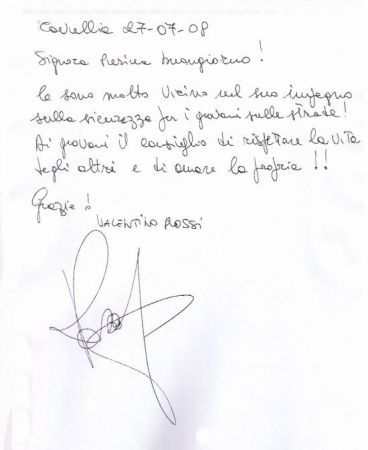 Cavellia 27-07-08
Signora Pierina buongiorno!
le sono molto vicino nel suo impegno
sulla sicurezza per i giovani sulle strade!
Ai giovani il consiglio di rispettare la vita
degli altri e di amare la propria !!
Grazie!
VALENTINO ROSSI